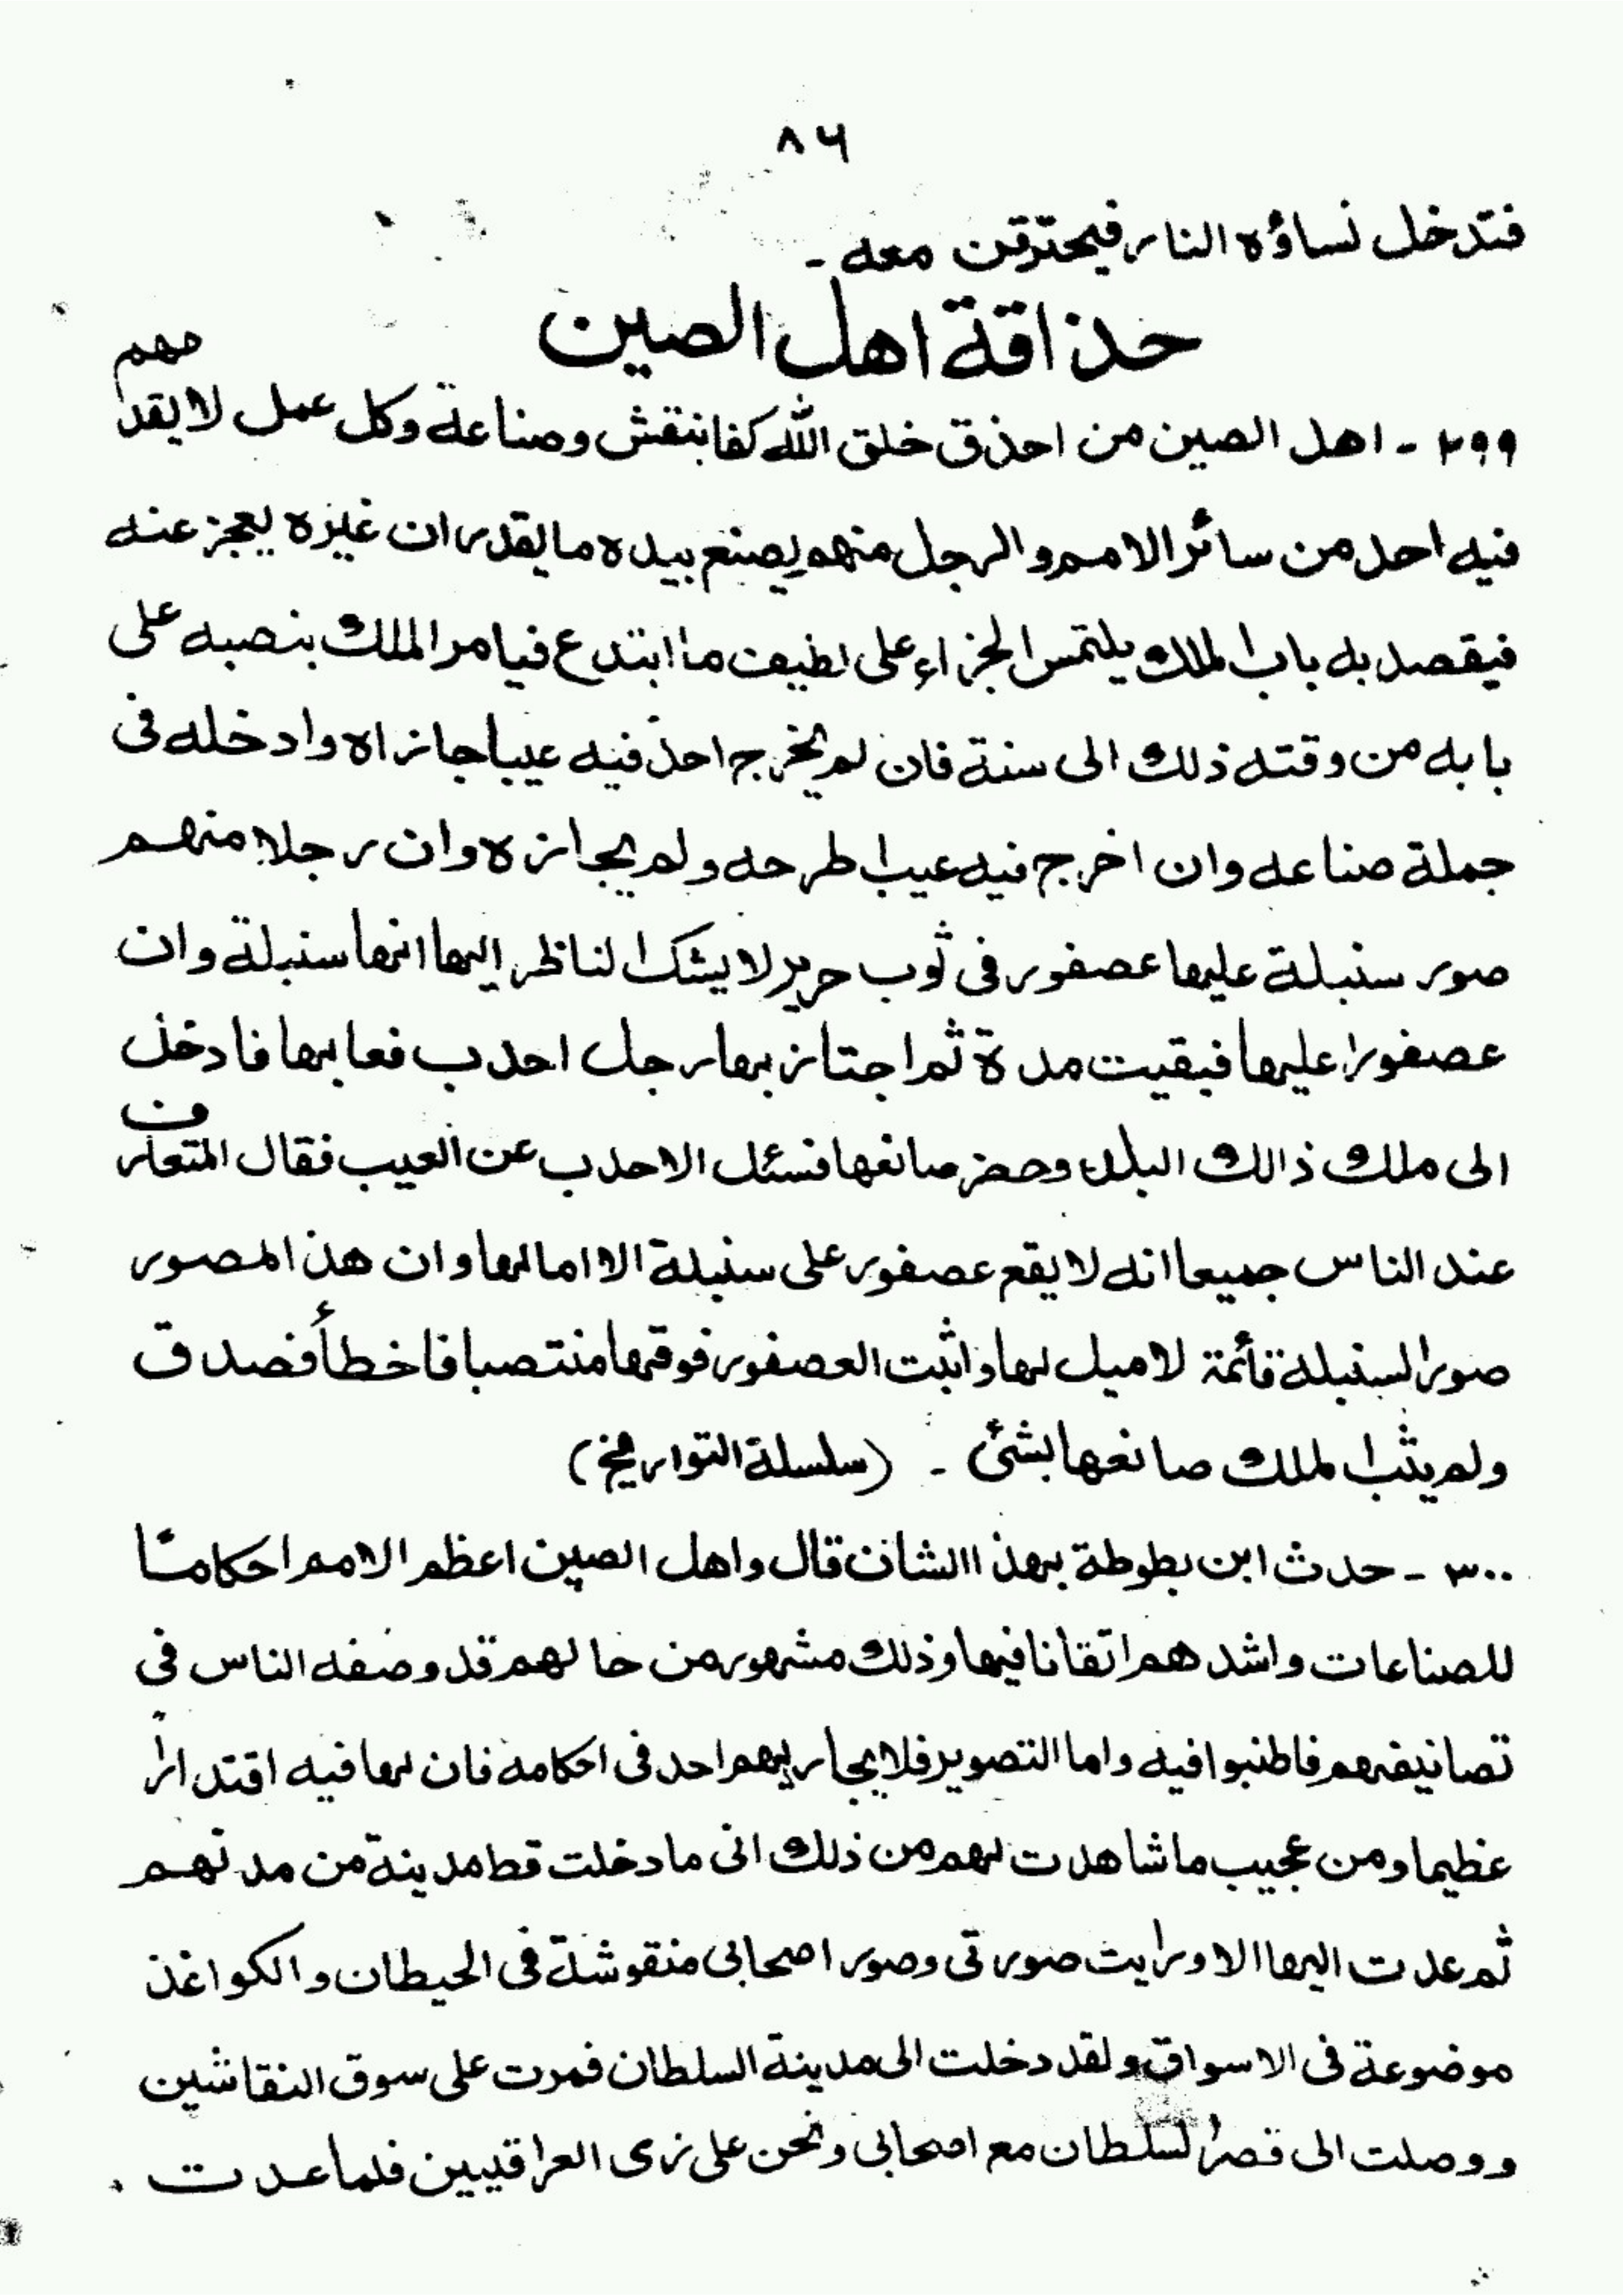 ٨٦
فتدخل نساؤه النار فيحترقن معه ۔
حذاقة اهل الصين
٢٩٩ ۔ اهل الصين من احذق خلق الله كفا بنقش وصناعة وكل عمل لا يقدمهم
فيه احد من سائر الامم والرجل منهم يصنع بيده ما يقدر ان غيره يعجز عنه
فيقصد به باب الملك يلتمس الجزاء على لطيف ما ابتدع فيامر الملك بنصبه على
بابه من وقته ذلك الى سنة فان لم يخرج احد فيه عيبا جازاه وادخله فى
جملة صناعه وان اخرج فيه عيب اطرحه ولم يجازه وان رجلا منهم
صور سنبلة عليها عصفور فى ثوب حرير لا يشك الناظر اليها انها سنبلة وان
عصفورا عليها فبقيت مدة ثم اجتاز بها رجل احدب فعابها فادخل
الى ملك ذالك البلد وحضر صانعها فسئل الاحدب عن العيب فقال المتعارف
عند الناس جميعا انه لا يقع عصفور على سنبلة الا امالها وان هذ المصور
صور السنبلة قائمة لا ميل لها واثبت العصفور فوقها منتصبا فاخطأ فصدق
ولم يثب الملك صانعها بشئ ۔ (سلسلة التواريخ)
٣٠٠ ۔ حدث ابن بطوطة بهذ االشان قال واهل الصين اعظم الامم احكاما
للصناعات واشدهم اتقانا فيها وذلك مشهور من حالهم قد وصفه الناس في
تصانيفهم فاطنبوا فيه واما التصوير فلا يجاريهم احد فى احكامه فان لهم فيه اقتدارا
عظيما ومن عجيب ما شاهدت لهم من ذلك انى ما دخلت قط مدينة من مدنهم
ثم عدت اليها الا ورايت صورتى وصور اصحابى منقوشة فى الحيطان والكواغذ
موضوعة فى الاسواق ولقد دخلت الى مدينة السلطان فمرت على سوق النقاشين
ووصلت الى قصر السلطان مع اصحابى ونحن على زى العراقيين فلما عدت